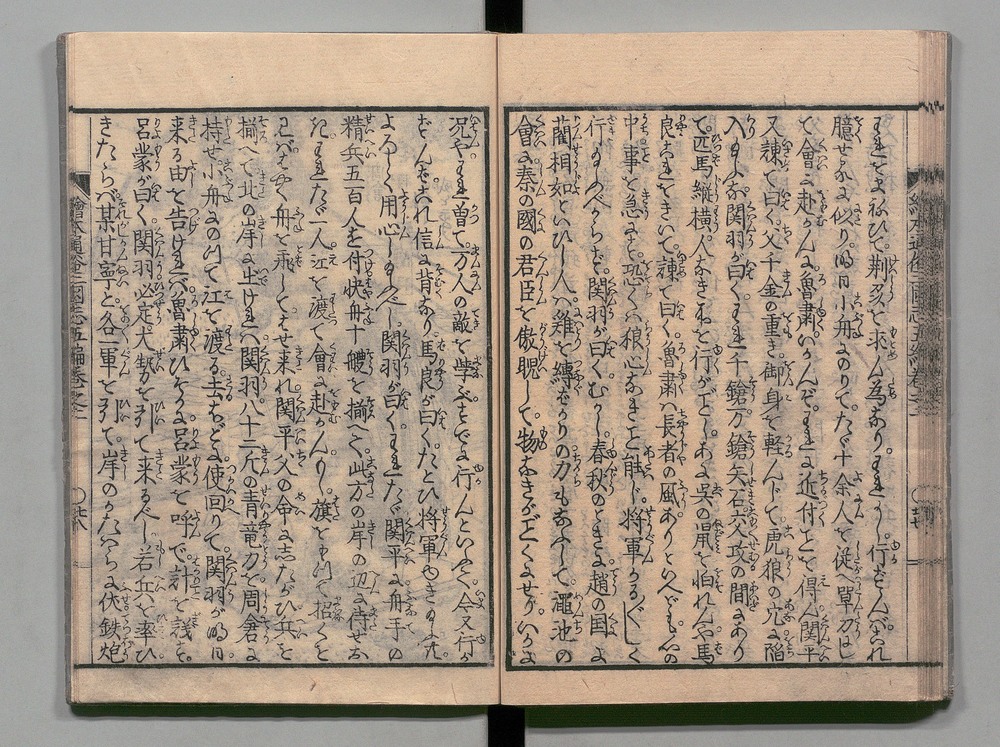 われをよびむかひて荊州を求ん為なり。われもし行ずんばかれ
臆せるに似り。明日小舟にのりてたゞ十余人を従へ單刀にし
て會に赴かんに魯肅いかんぞわれに近付ことを得ん関平
又諌て曰く。父千金の重き御身を軽んじて虎狼の穴に陥
入り玉ふな関羽が曰くわれ千鎗万鎗矢石交攻の間にあり
て。匹馬縦横人なき地を行がごとし。あに呉の鼠を怕れんや馬
良これをきいて。諌て曰く。魯肅ハ長者の風ありといへども。心の
中事を急にす。恐くハ狼心なきこと能ハじ。将軍かるがるしく
行玉ふべからず。関羽が曰くむかし春秋のとき。趙の国に
藺相如といひし人ハ雞を縛ばかりの力もなふして。澠池の
會に秦の國の君臣を傲睨して。物なきがごとくよせり。いかに
況やわれ曽て一万人の敵を學ぶをや。すでに行んといへり。今又行か
ずんばこれ信に背なり馬良が曰く。たとひ将軍ゆき玉ふ共。
よろしく用心し玉ふべし。関羽が曰くわれたゞ関平に舟手の
精兵五百人を付快舟十艘を揃へて。此方の岸の辺に待せお
き。われたゞ一人江を渡て會に赴かんり。旗をもつて招くを
見バはやく舟を飛してはせ来れ関平。父の命にしたがひ兵を
揃へて北の岸に止けれバ関羽。八十二斤の青竜刀を周倉に
持せ小舟にのつて江を渡る。去ほどに使回りて関羽が明日
来る由を告けれバ。魯肅ひそかに呂蒙を呼で計を議す。
呂蒙が曰く。関羽必定大勢を引て来るべし若兵を率ひ
きたらバ某甘寧と各一軍を引て。岸のかたハらに伏鉄炮